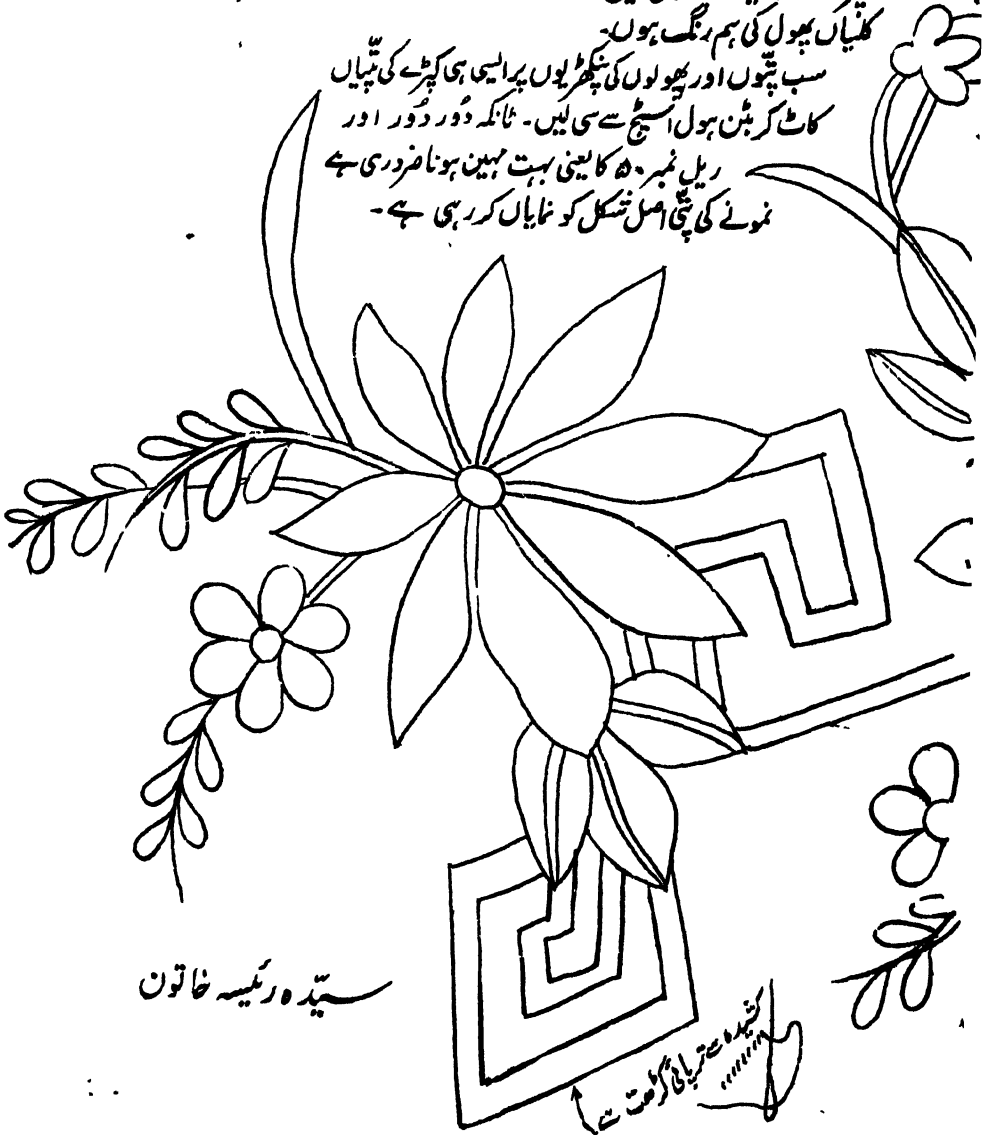 کلیاں پھول کی ہم رنگ ہوں۔
سب پتّوں اور پھولوں کی پنکھڑیوں پر ایسی ہی کپڑے کی پتّیاں
کاٹ کر بٹن ہول اسٹیچ سے سی لیں۔ ٹانکہ دُور دُور اور
ریل نمبر ۵۰ کا یعنی بہت مہین ہونا ضروری ہے
نمونے کی پتّی اصل شکل کو نمایاں کر رہی ہے۔
سیّدہ رئیسہ خاتون
کشیدہ سے